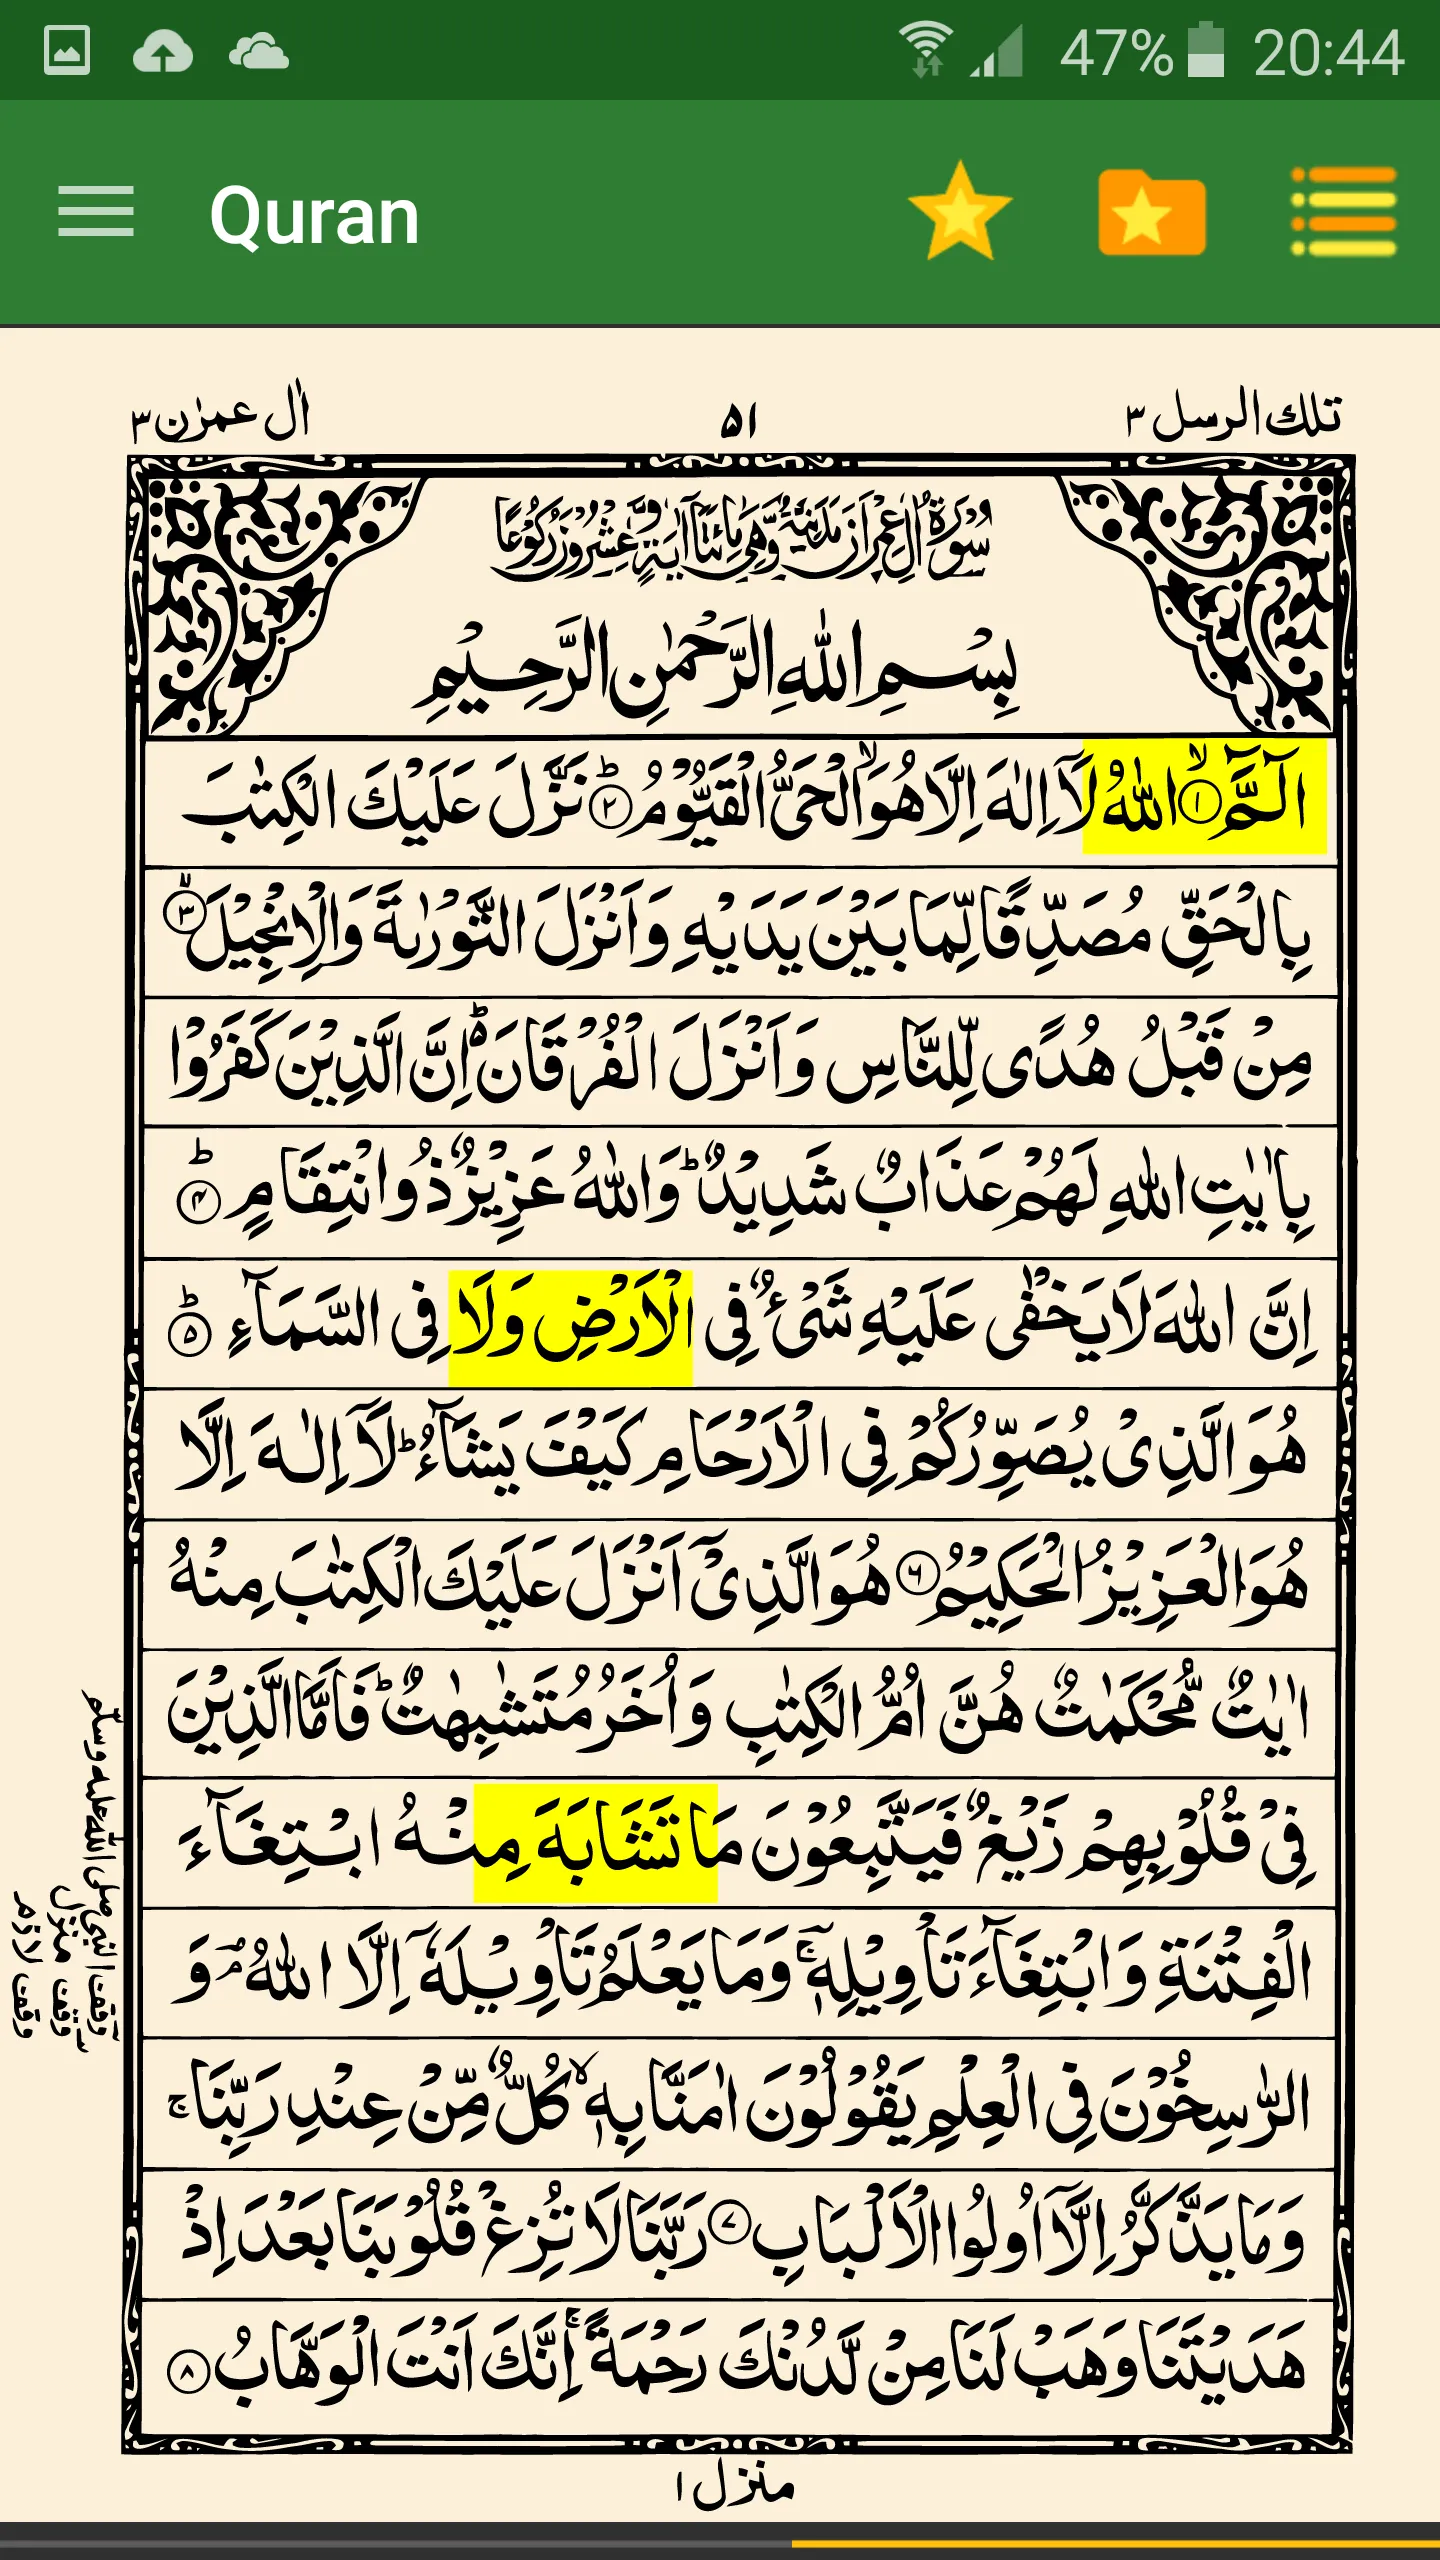 47% 20:44
Quran
تلك الرسل ٣
٥١
اٰل عمرٰن ٣
سُوْرَةُ اٰلِ عِمْرَانَ مَدَنِيَّةٌ وَّهِيَ مِائَتَا اٰيَةٍ وَّعِشْرُوْنَ رُكُوْعًا
بِسْمِ اللّٰهِ الرَّحْمٰنِ الرَّحِيْمِ
الٓمَّٓ ۙ﴿١﴾ اللّٰهُ لَاۤ اِلٰهَ اِلَّا هُوَ ۙ الْحَىُّ الْقَيُّوْمُ ؕ﴿٢﴾ نَزَّلَ عَلَيْكَ الْكِتٰبَ
بِالْحَقِّ مُصَدِّقًا لِّمَا بَيْنَ يَدَيْهِ وَاَنْزَلَ التَّوْرٰىةَ وَالْاِنْجِيْلَ ۙ﴿٣﴾
مِنْ قَبْلُ هُدًى لِّلنَّاسِ وَاَنْزَلَ الْفُرْقَانَ ؕ اِنَّ الَّذِيْنَ كَفَرُوْا
بِاٰيٰتِ اللّٰهِ لَهُمْ عَذَابٌ شَدِيْدٌ ؕ وَاللّٰهُ عَزِيْزٌ ذُو انْتِقَامٍ ؕ﴿٤﴾
اِنَّ اللّٰهَ لَا يَخْفٰى عَلَيْهِ شَىْءٌ فِى الْاَرْضِ وَلَا فِى السَّمَآءِ ؕ﴿٥﴾
هُوَ الَّذِىْ يُصَوِّرُكُمْ فِى الْاَرْحَامِ كَيْفَ يَشَآءُ ؕ لَاۤ اِلٰهَ اِلَّا
هُوَ الْعَزِيْزُ الْحَكِيْمُ ﴿٦﴾ هُوَ الَّذِىْۤ اَنْزَلَ عَلَيْكَ الْكِتٰبَ مِنْهُ
اٰيٰتٌ مُّحْكَمٰتٌ هُنَّ اُمُّ الْكِتٰبِ وَاُخَرُ مُتَشٰبِهٰتٌ ؕ فَاَمَّا الَّذِيْنَ
فِىْ قُلُوْبِهِمْ زَيْغٌ فَيَتَّبِعُوْنَ مَا تَشَابَهَ مِنْهُ ابْتِغَآءَ
الْفِتْنَةِ وَابْتِغَآءَ تَاْوِيْلِهٖ ۚ وَمَا يَعْلَمُ تَاْوِيْلَهٗۤ اِلَّا اللّٰهُ ۘ وَ
الرّٰسِخُوْنَ فِى الْعِلْمِ يَقُوْلُوْنَ اٰمَنَّا بِهٖ ۙ كُلٌّ مِّنْ عِنْدِ رَبِّنَا ۚ
وَمَا يَذَّكَّرُ اِلَّاۤ اُولُوا الْاَلْبَابِ ﴿٧﴾ رَبَّنَا لَا تُزِغْ قُلُوْبَنَا بَعْدَ اِذْ
هَدَيْتَنَا وَهَبْ لَنَا مِنْ لَّدُنْكَ رَحْمَةً ۚ اِنَّكَ اَنْتَ الْوَهَّابُ ﴿٨﴾
وقف النبی صلی اللّٰه علیه وسلم
وقف منزل
وقف لازم
منزل ١